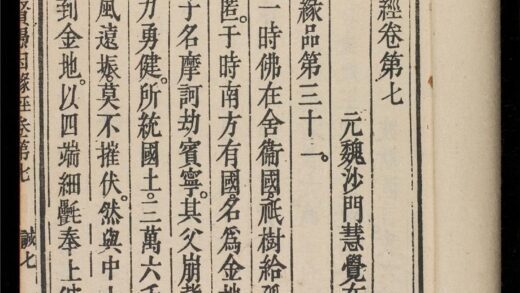 經卷第七
元魏沙門慧覺在
緣品第三十一。
一時佛在舍衞國。祇樹給孤
匿。于時南方有國。名爲金地
子名摩訶劫賓寧。其父崩背
力勇健。所統國土。三萬六千
風遠振。莫不摧伏。然與中
到金地。以四端細㲲奉上
賢愚因緣經卷第七 誠七